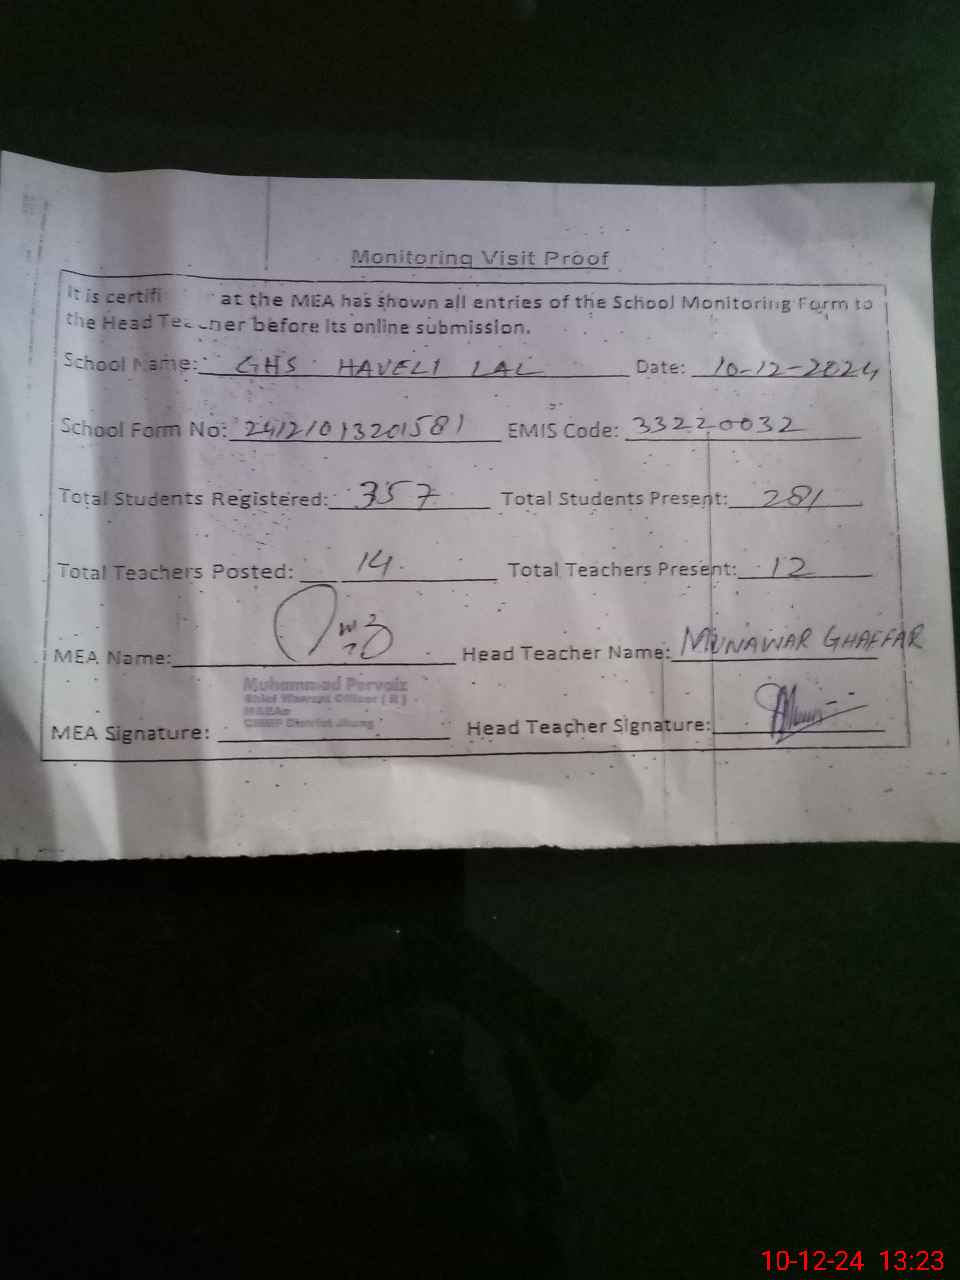 Monitoring Visit Proof
It is certifi at the MEA has shown all entries of the School Monitoring Form to
the Head Teacher before its online submission.
School Name: GHS HAVELI LAL Date: 10-12-2024
School Form No: 24121013201581 EMIS Code: 33220032
Total Students Registered: 357 Total Students Present: 281
Total Teachers Posted: 14 Total Teachers Present: 12
MEA Name: Head Teacher Name: MUNAWAR GHAFFAR
Muhammad Pervaiz
Chief Warrant Officer ( R )
District Jhang
MEA Signature: Head Teacher Signature:
10-12-24 13:23